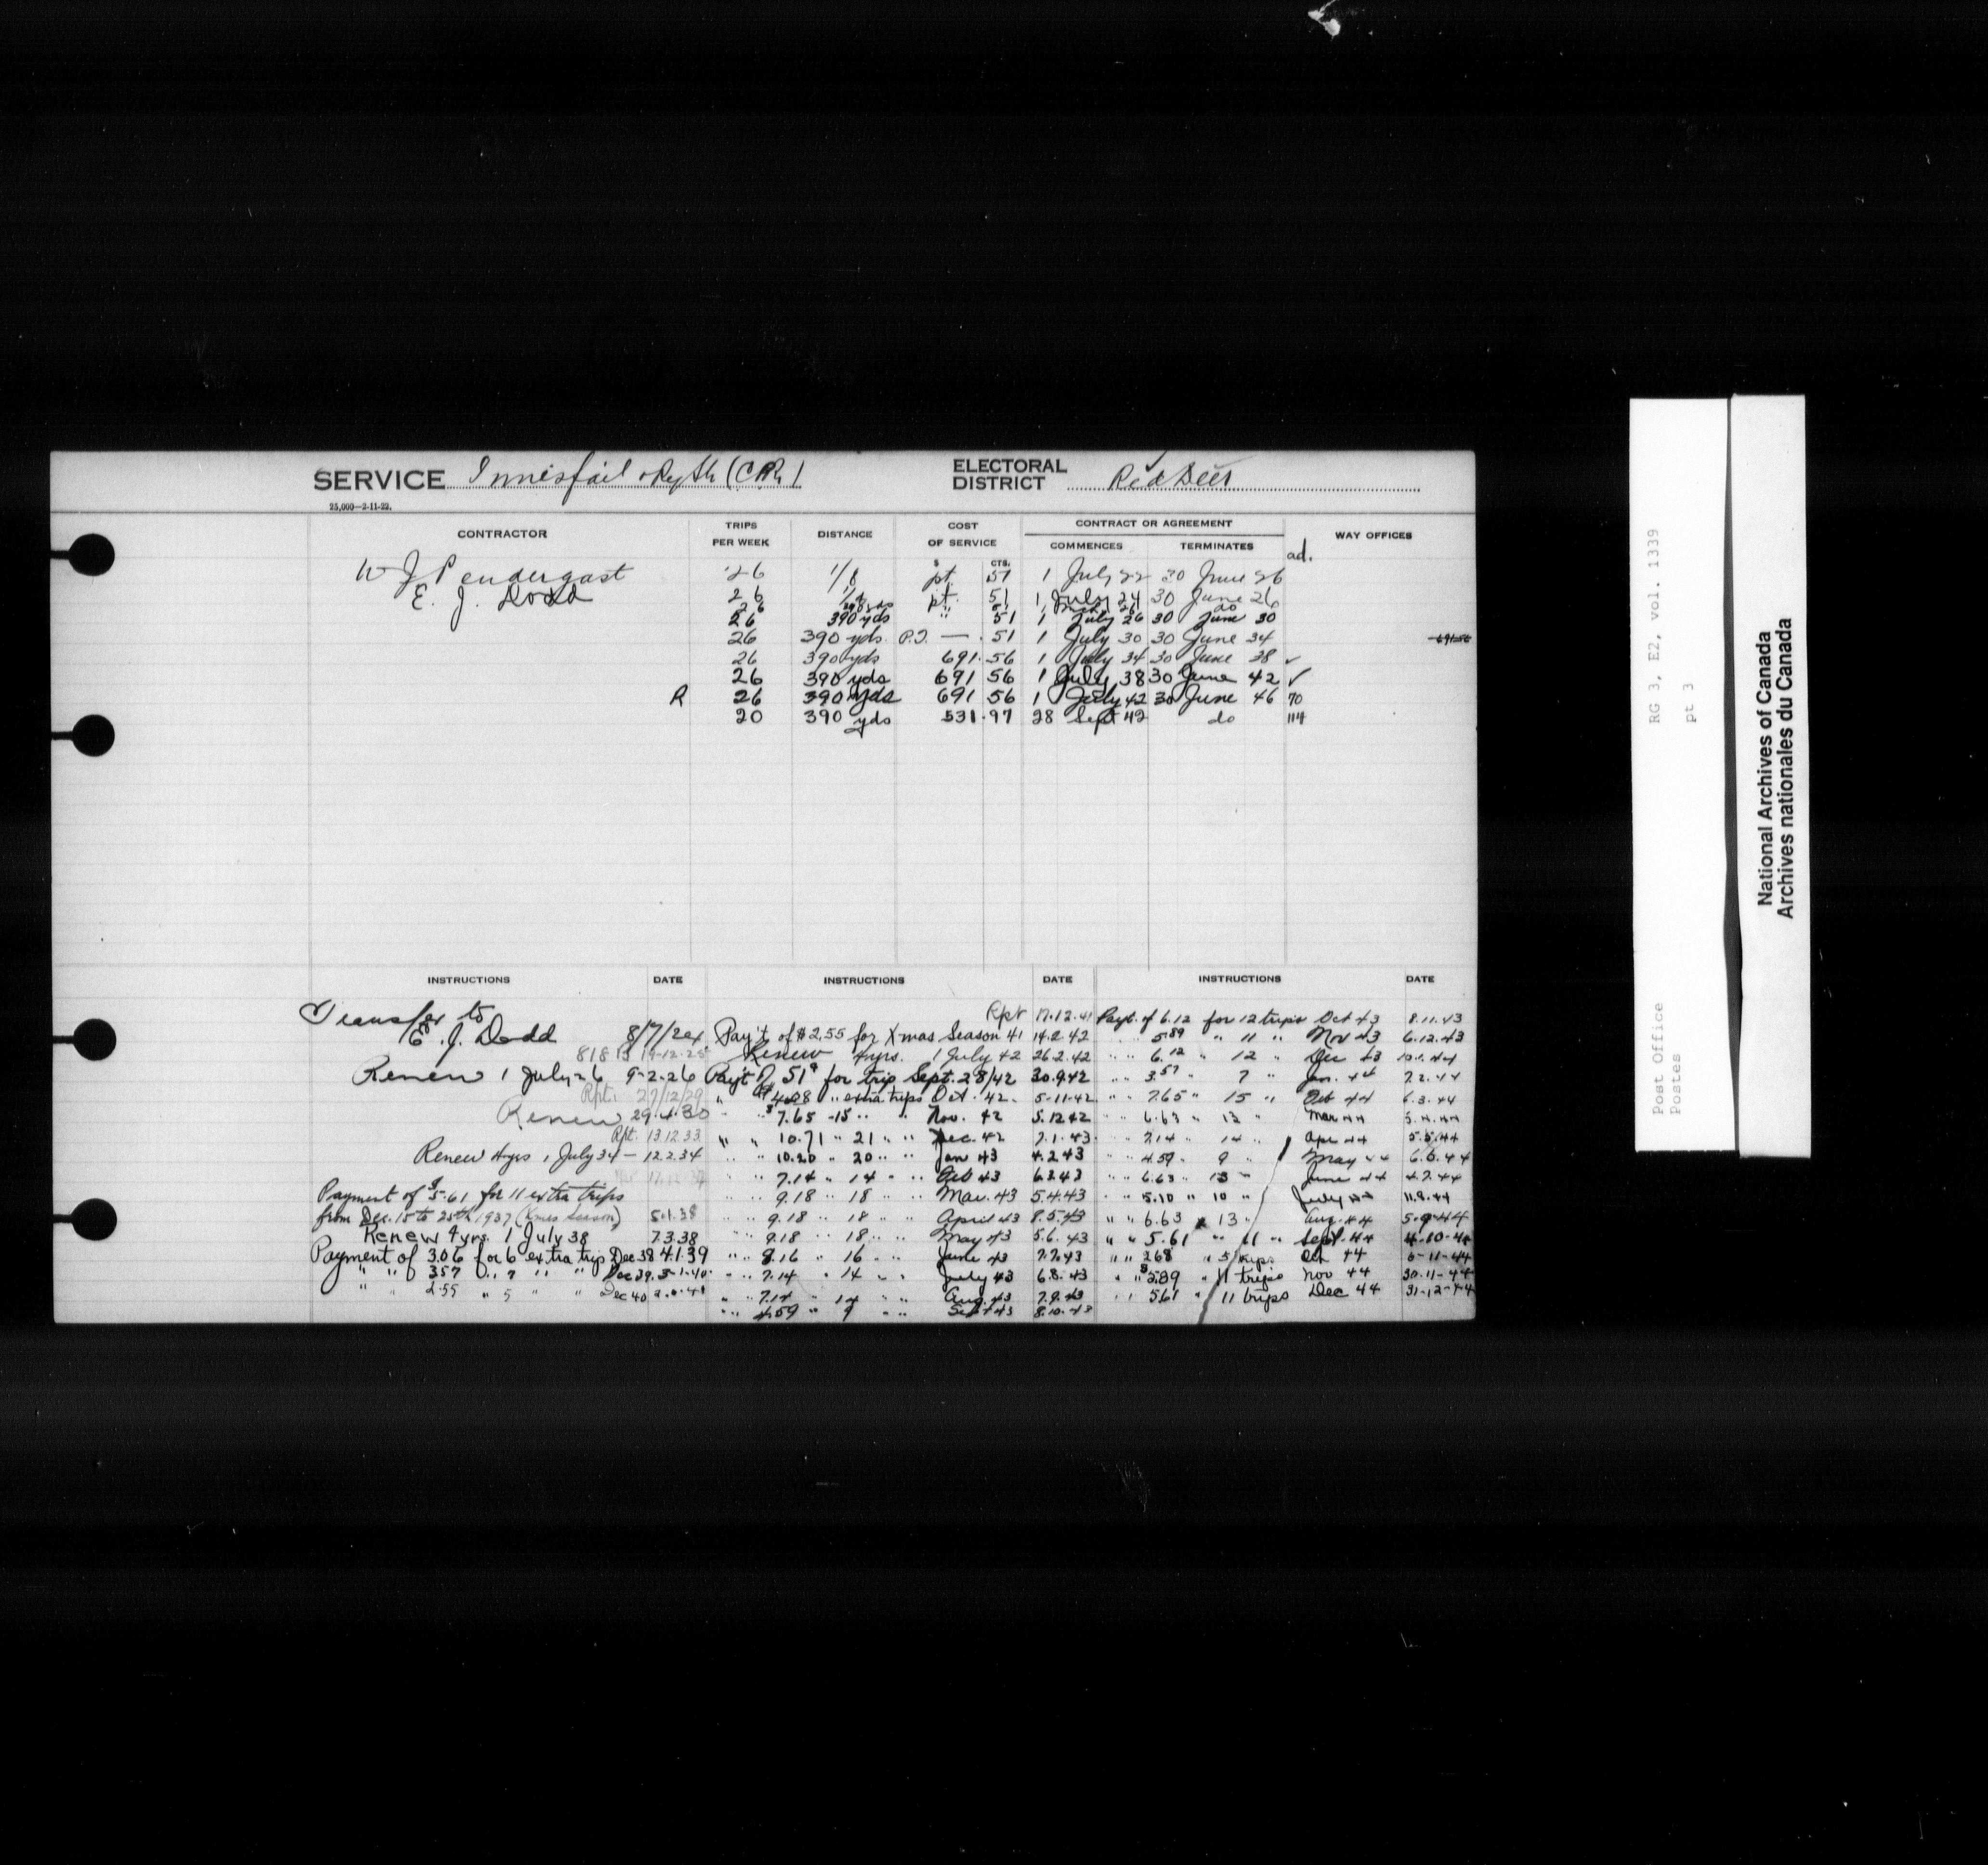 SERVICE Innisfail & Ry Stn (C.P.R.)
ELECTORAL DISTRICT Red Deer
25,000—2-11-22.
CONTRACTOR TRIPS PER WEEK DISTANCE COST OF SERVICE CONTRACT OR AGREEMENT WAY OFFICES
COMMENCES TERMINATES ad.
$ CTS.
W J Pendergast 26 1/8 pt. 51 1 July 22 30 June 26
E. J. Dodd 26 pt. 51 1 July 24 30 June 26
26 " 51 do
26 390 yds 51 1 July 26 30 June 30
26 390 yds. P.T. — .51 1 July 30 30 June 34 691.56
26 390 yds 691.56 1 July 34 30 June 38 ✓
26 390 yds 691 56 1 July 38 30 June 42 ✓
R 26 390 yds 691 56 1 July 42 30 June 46 70
20 390 yds 531.97 28 Sept 42 do 114
INSTRUCTIONS DATE
Transfer to
E. J. Dodd 8/7/24
818 B 19-12-25
Renew 1 July 26 9-2-26
Rpt. 27/12/29
Renew 29.4.30
Rpt. 13.12.33
Renew 4 yrs 1 July 34 — 12.2.34
Payment of $5.61 for 11 extra trips
from Dec. 15 to 25th 1937 (Xmas Season) 5.1.38
Renew 4 yrs. 1 July 38 7.3.38
Payment of 3.06 for 6 extra trip Dec 38 4.1.39
" " 357 " 7 " " Dec 39. 5-1-40.
" " 2.55 " 5 " " Dec 40
INSTRUCTIONS DATE
Rpt 17.12.41
Pay't of $2.55 for Xmas Season 41 14.2.42
Renew 4 yrs. 1 July 42 26.2.42
Pay't of 51¢ for trip Sept. 28/42 30.9.42
" $4.08 " extra trips Oct. 42. 5-11-42
" $7.65 - 15 " " Nov. 42 5.12.42
" " 10.71 " 21 " " Dec. 42 7.1.43.
" " 10.20 " 20 " " Jan 43 4.2.43
" " 7.14 " 14 " " Feb 43 6.2.43
" " 9.18 " 18 " " Mar. 43 5.4.43
" " 9.18 " 18 " " April 43 8.5.43
" " 9.18 " 18 " " May 43 5.6.43
" " 8.16 " 16 " " June 43 7.7.43
" " 7.14 " 14 " " July 43 6.8.43
" " 7.14 " 14 " " Aug. 43 7.9.43
" " 4.59 " 9 " " Sept 43 8.10.43
INSTRUCTIONS DATE
Payt. of 6.12 for 12 trips Oct 43 8.11.43
" " 5.89 " 11 " Nov 43 6.12.43
" " 6.12 " 12 " Dec 43 10.1.44
" " 3.57 " 7 " Jan. 44 7.2.44
" " 7.65 " 15 " Feb 44 6.3.44
" " 6.63 " 13 " Mar 44 5.4.44
" " 7.14 " 14 " Apr 44 5.5.44
" " 4.59 " 9 " May 44 6.6.44
" " 6.63 " 13 " June 44 4.7.44
" " 5.10 " 10 " July 44 11.8.44
" " 6.63 " 13 " Aug. 44 5.9.44
" " 5.61 " 11 " Sept. 44 4-10-44
" " 268 " 5 trips Oct 44 6-11-44
" " $5.89 " 11 trips Nov 44 30-11-44
" " 561 " 11 trips Dec 44 31-12-44
RG 3, E2, vol. 1339
pt 3
Post Office
Postes
National Archives of Canada
Archives nationales du Canada